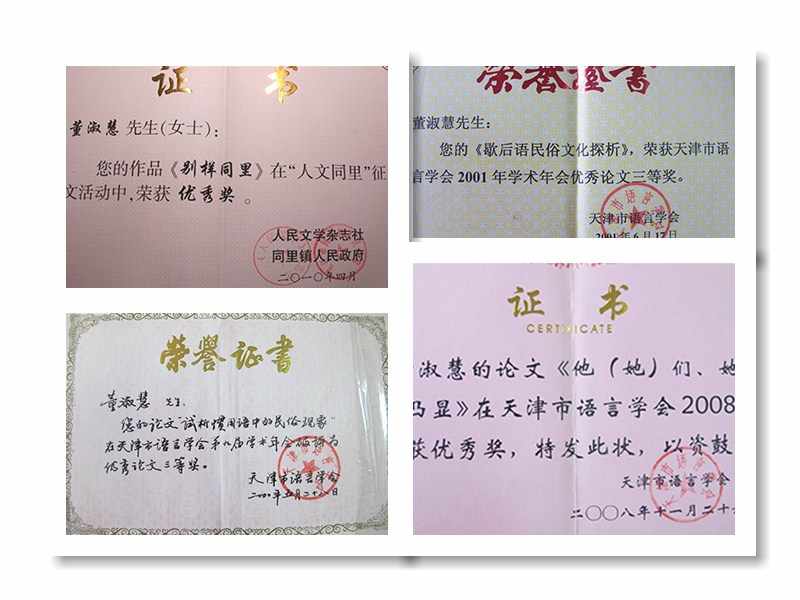 证 书
董淑慧 先生(女士):
您的作品《别样同里》在“人文同里”征
文活动中,荣获 优秀奖 。
人民文学杂志社
同里镇人民政府
二〇一〇年四月
荣誉證書
董淑慧先生:
您的《歇后语民俗文化探析》,荣获天津市语
言学会2001年学术年会优秀论文三等奖。
天津市语言学会
2001年6月17日
荣誉证書
董淑慧 先生.
您的论文“试析惯用语中的民俗现象”
在天津市语言学会第九届学术年会被评为
优秀论文三等奖。
天津市语言学会
二〇〇〇年五月二十八日
证 书
CERTIFICATE
淑慧的论文《他(她)们、她
乃显》在天津市语言学会2008
获优秀奖,特发此状,以资鼓
天津市语言学会
二〇〇八年十一月二十